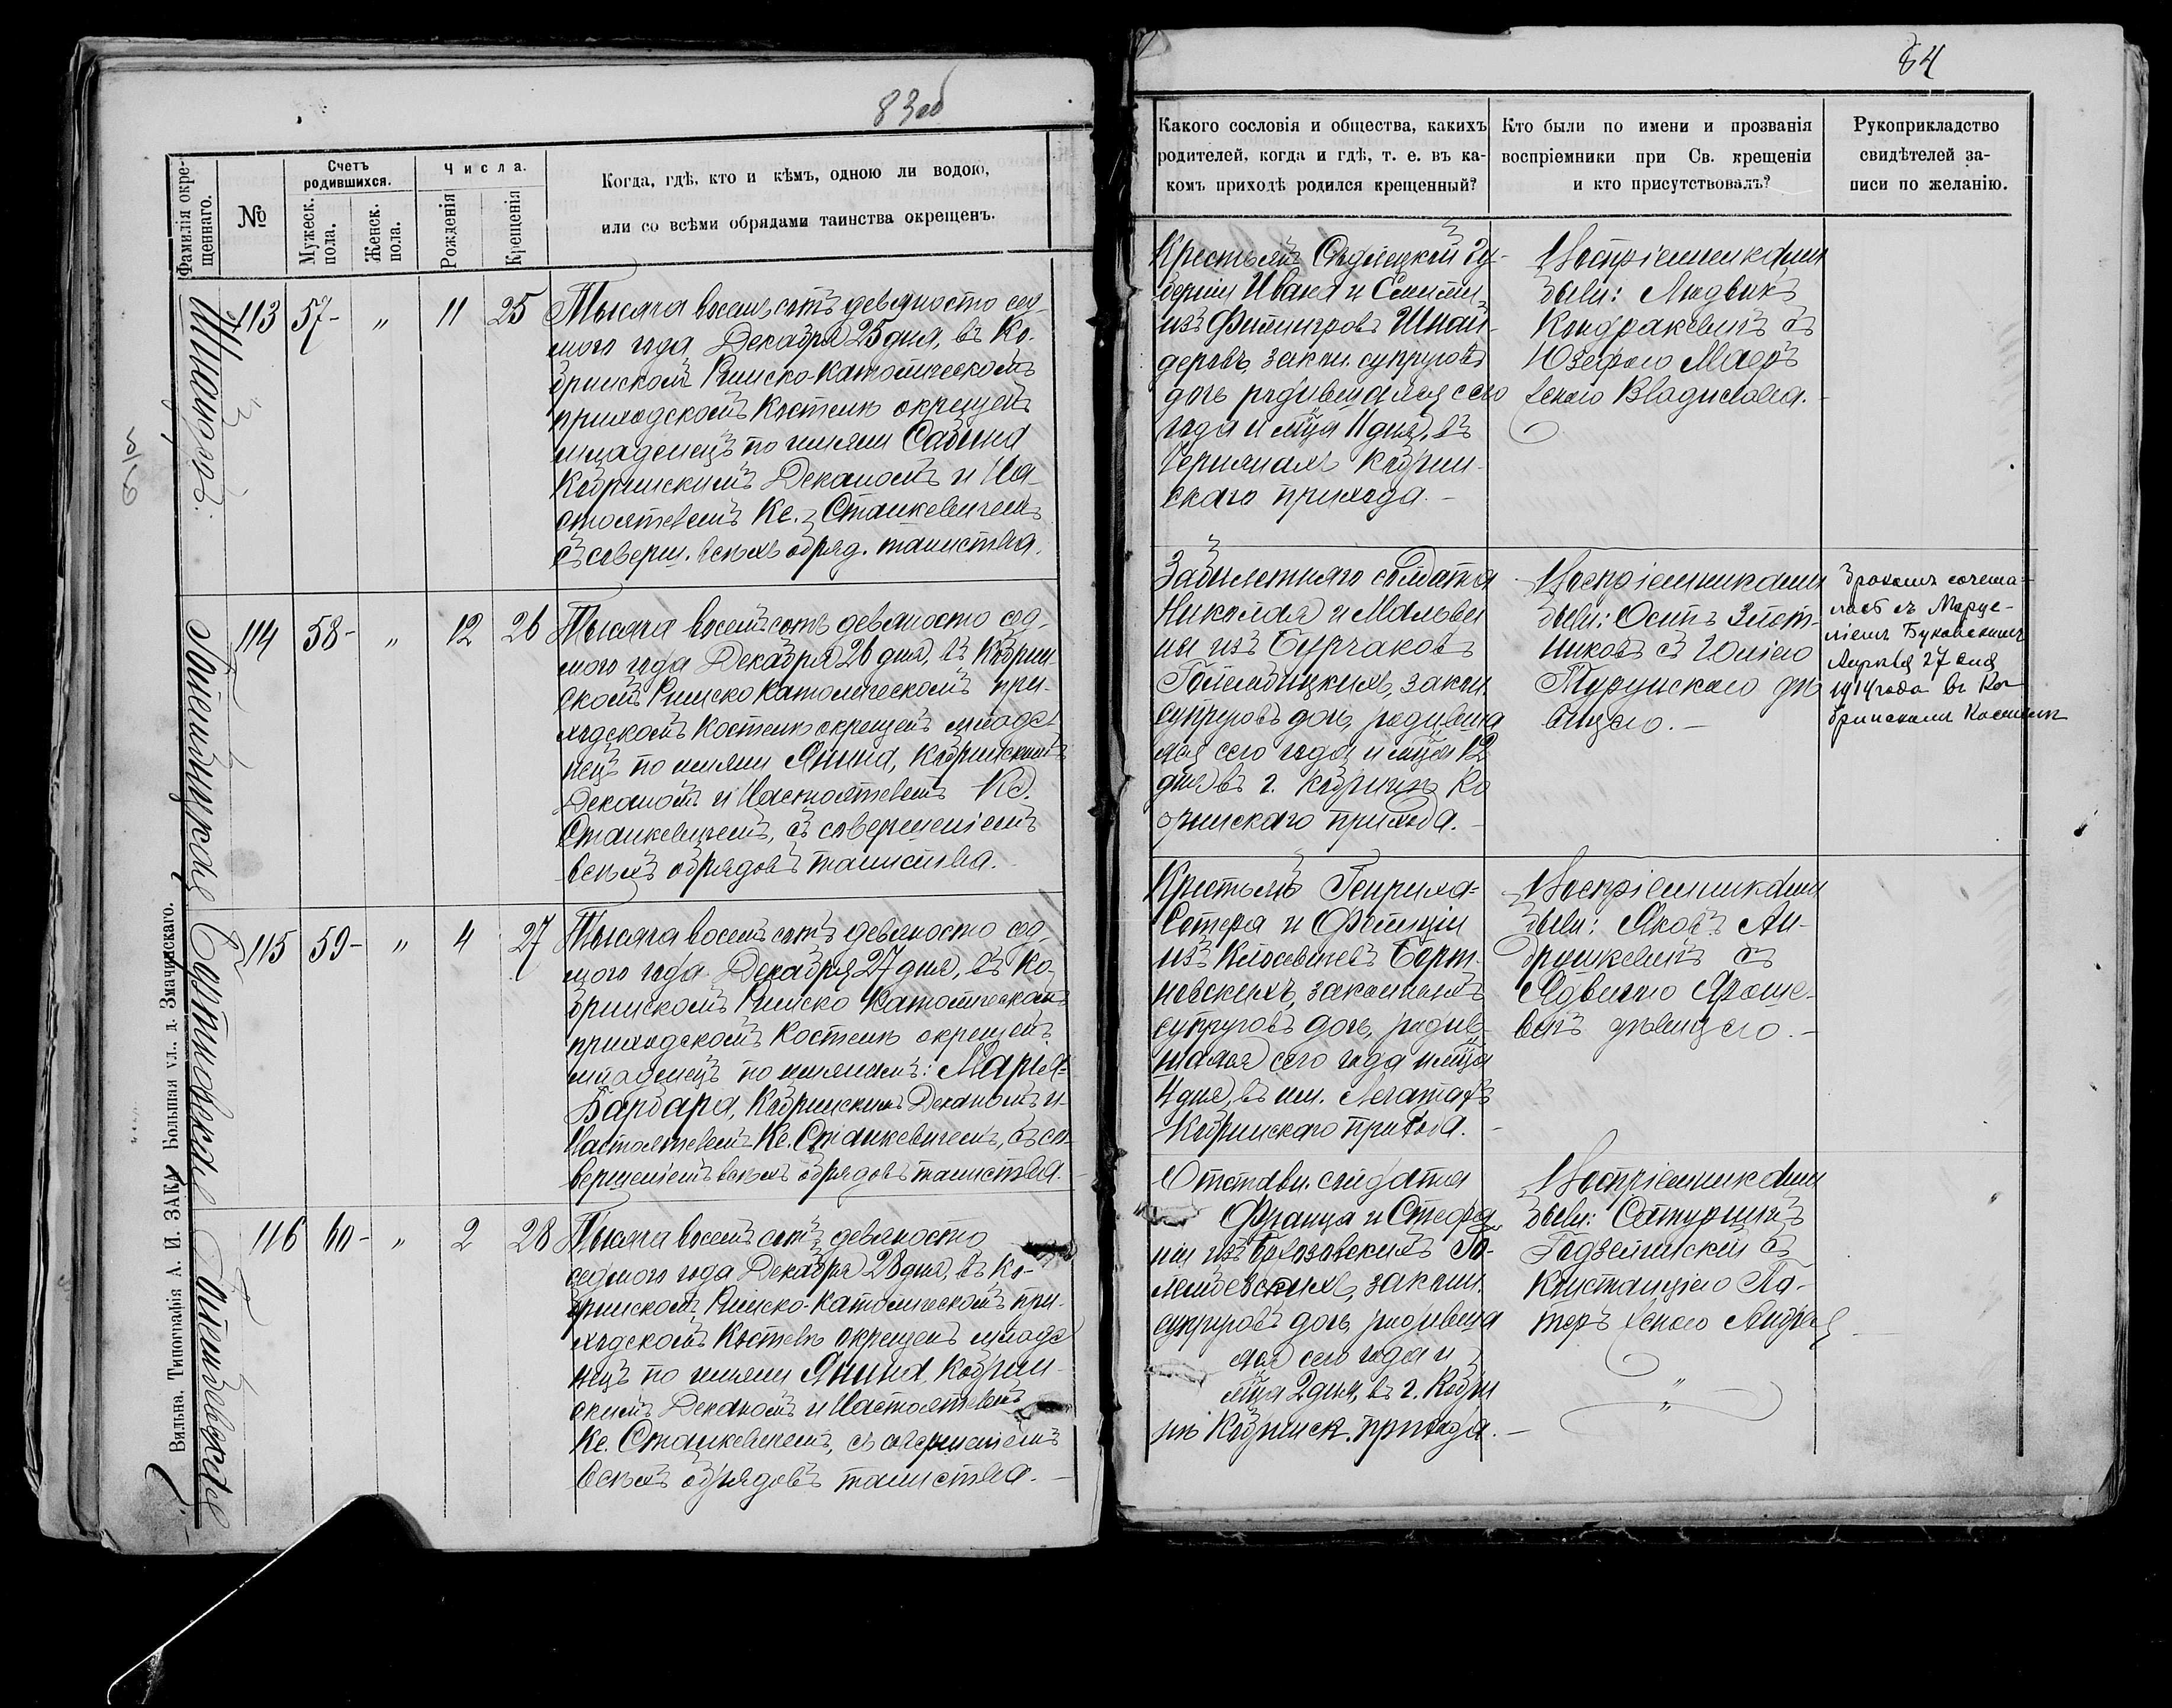 83 об
Фамилія окре-
щеннаго.
№
Счетъ
родившихся.
Мужеск.
пола.
Женск.
пола.
Числа.
Рожденія
Крещенія
Когда, гдѣ, кто и кѣмъ, одною ли водою,
или со всѣми обрядами таинства окрещенъ.
Шнайдеровъ.
113 57- „ 11 25
Тысяча восемьсотъ девяносто сед-
мого года Декабря 25 дня, въ Ко-
бринскомъ Римско-Католическомъ
приходскомъ Костелѣ окрещенъ
младенецъ по имени Сабина
Кобринскимъ Деканомъ и На-
стоятелемъ Кс. Станкевичемъ
съ соверш. всѣхъ обряд. таинства.
114 58- „ 12 26
Тысяча восемьсотъ девяносто сед-
мого года Декабря 26 дня, въ Кобрин-
скомъ Римско Католическомъ при-
ходскомъ Костелѣ окрещенъ младе-
нецъ по имени Янина, Кобринскимъ
Деканомъ и Настоятелемъ Кс.
Станкевичемъ, съ совершеніемъ
всѣхъ обрядовъ таинства.
115 59- „ 4 27
Тысяча восемьсотъ девяносто сед-
мого года Декабря 27 дня, въ Ко-
бринскомъ Римско Католическомъ
приходскомъ Костелѣ окрещенъ
младенецъ по именамъ: Марія-
Барбара, Кобринскимъ Деканомъ и
Настоятелемъ Кс. Станкевичемъ, съ со-
вершеніемъ всѣхъ обрядовъ таинства.
116 60- „ 2 28
Тысяча восемьсотъ девяносто
седмого года Декабря 28 дня, въ Ко-
бринскомъ Римско-Католическомъ при-
ходскомъ Костелѣ окрещенъ младе
нецъ по имени Янина Кобрин-
скимъ Деканомъ и Настоятелемъ
Кс. Станкевичемъ, съ совершеніемъ
всѣхъ обрядовъ таинства.
Вильна, Типографія А. И. ЗАКА Большая ул., д. Змачинскаго.
84
Какого сословія и общества, какихъ
родителей, когда и гдѣ, т. е. въ ка-
комъ приходѣ родился крещенный?
Кто были по имени и прозванія
воспріемники при Св. крещеніи
и кто присутствовалъ?
Рукоприкладство
свидѣтелей за-
писи по желанію.
Крестьянъ Сѣдлецкой Гу-
берніи Ивана и
изъ Шнай-
деровъ, закон. супруговъ
дочь, родившаяся сего
года и мѣсяца 11 дня, въ
Кобрин-
скаго прихода.
Воспріемниками
были: Людвикъ
Кондракевичъ съ
Юзефою Маеръ
женою Владислава.
Забилетнаго солдата
Николая и Мальви
ны изъ Бурчаковъ
закон.
супруговъ дочь, родивша
яся сего года и мѣсяца 12
дня въ г. Кобринѣ Ко
бринскаго прихода.
Воспріемниками
были: Осипъ Злот-
никовъ съ Юліею
дѣ
вицею.
Бракомъ сочета-
лась съ Марце-
ліемъ Буковскимъ
Апрѣля 27 дня
1914 года въ Ко-
бринскомъ Костелѣ
Крестьянъ Генриха-
и Фелиціи
изъ
законныхъ
супруговъ дочь, родив-
шаяся сего года и мѣсяца
4 дня, въ им. Легатахъ
Кобринскаго прихода.
Воспріемниками
были: Яковъ Ан-
дрошкевичъ съ
Ядвигою Яроше-
вичъ дѣвицею.
Отставн. солдата
Франца и Стефа
ніи изъ Го-
лембевскихъ, закон.
супруговъ дочь, родивша
яся сего года и
мѣсяца 2 дня, въ г. Кобри
нѣ Кобринск. прихода.
Воспріемниками
были: Сатурнинъ
съ
Констанціею Па-
теръ женою